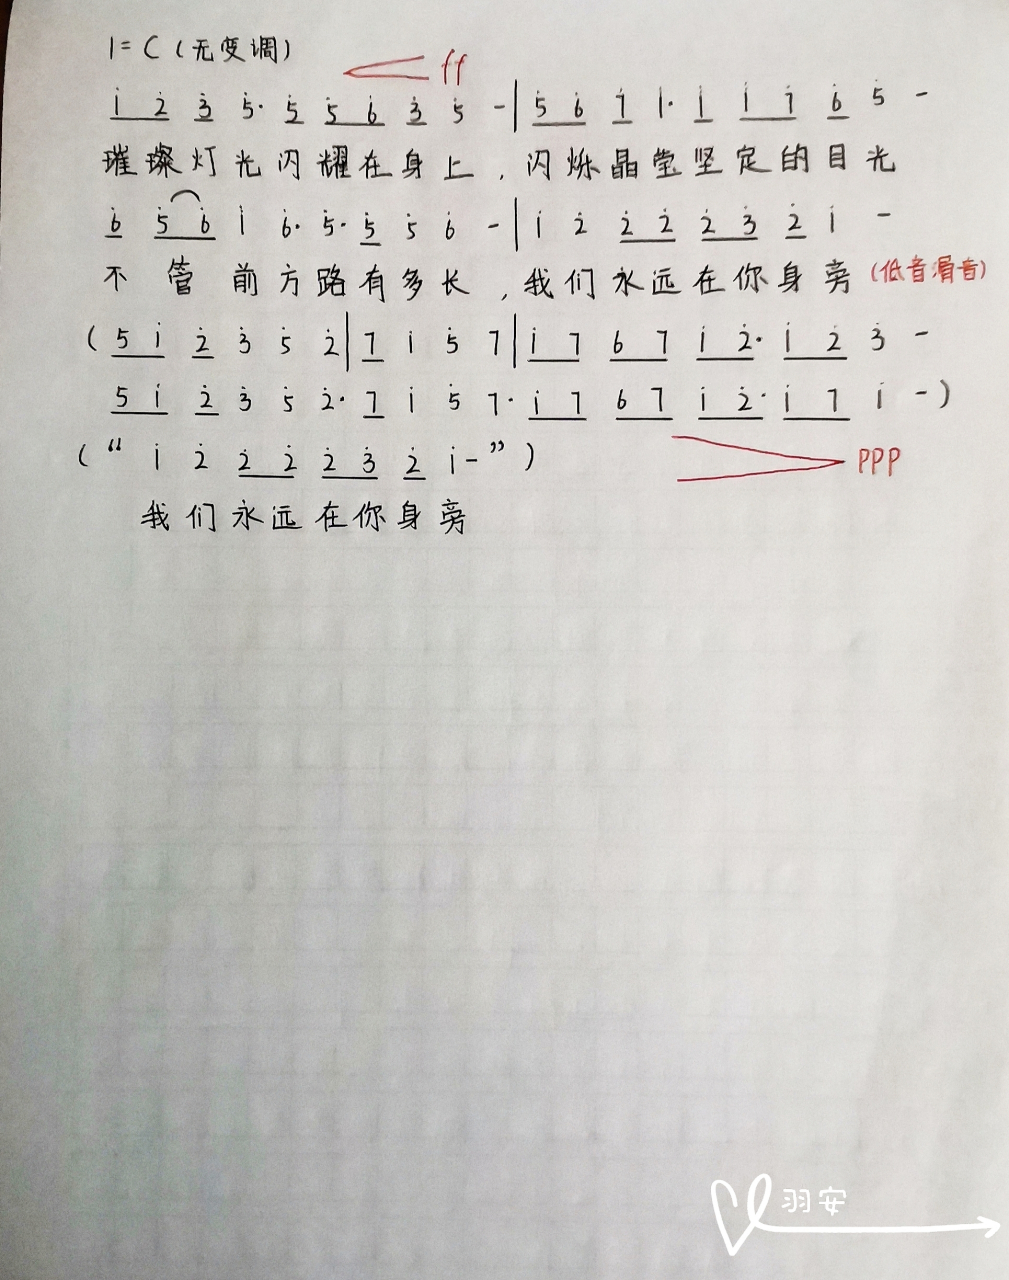 1=C（无变调）
ff
1̇ 2̇ 3̇ 5̇· 5̇ 5̇ 6̇ 3̇ 5̇ - | 5̇ 6̇ 7̇ 1· 1̇ 1̇ 7̇ 6̇ 5̇ -
璀璨灯光闪耀在身上，闪烁晶莹坚定的目光
6̇ 5̇ 6̇ 1̇ 6̇· 5̇· 5̇ 5̇ 6̇ - | 1̇ 2̇ 2̇ 2̇ 2̇ 3̇ 2̇ 1̇ -
不管前方路有多长，我们永远在你身旁（低音滑音）
（5 1̇ 2̇ 3̇ 5̇ 2̇ | 7 1̇ 5̇ 7 | 1̇ 7 6 7 1̇ 2̇· 1̇ 2̇ 3̇ -
5 1̇ 2̇ 3̇ 5̇ 2̇· 7 1̇ 5̇ 7· 1̇ 7 6 7 1̇ 2̇· 1̇ 7 1̇ -）
（“1̇ 2̇ 2̇ 2̇ 2̇ 3̇ 2̇ 1̇-”）
ppp
我们永远在你身旁
羽安